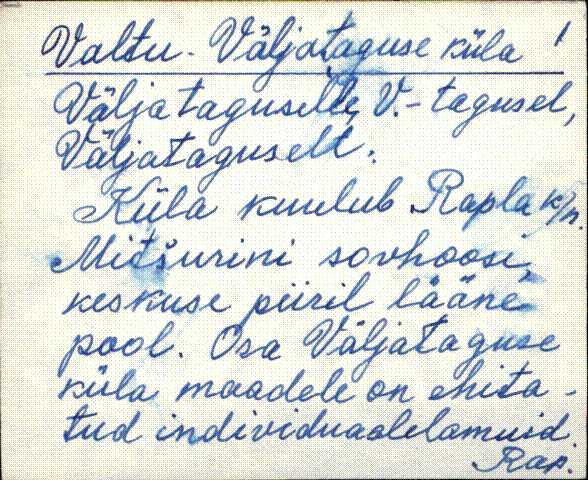 Valtu-Väljataguse küla 1
Väljatagusele, V.-tagusel,
Väljataguselt.
Küla kuulub Rapla k/n.
Mitšurini sovhoosi,
keskuse piiril lääne
pool. Osa Väljataguse
küla maadele on ehita-
tud individuaalelamuid.
Rap.